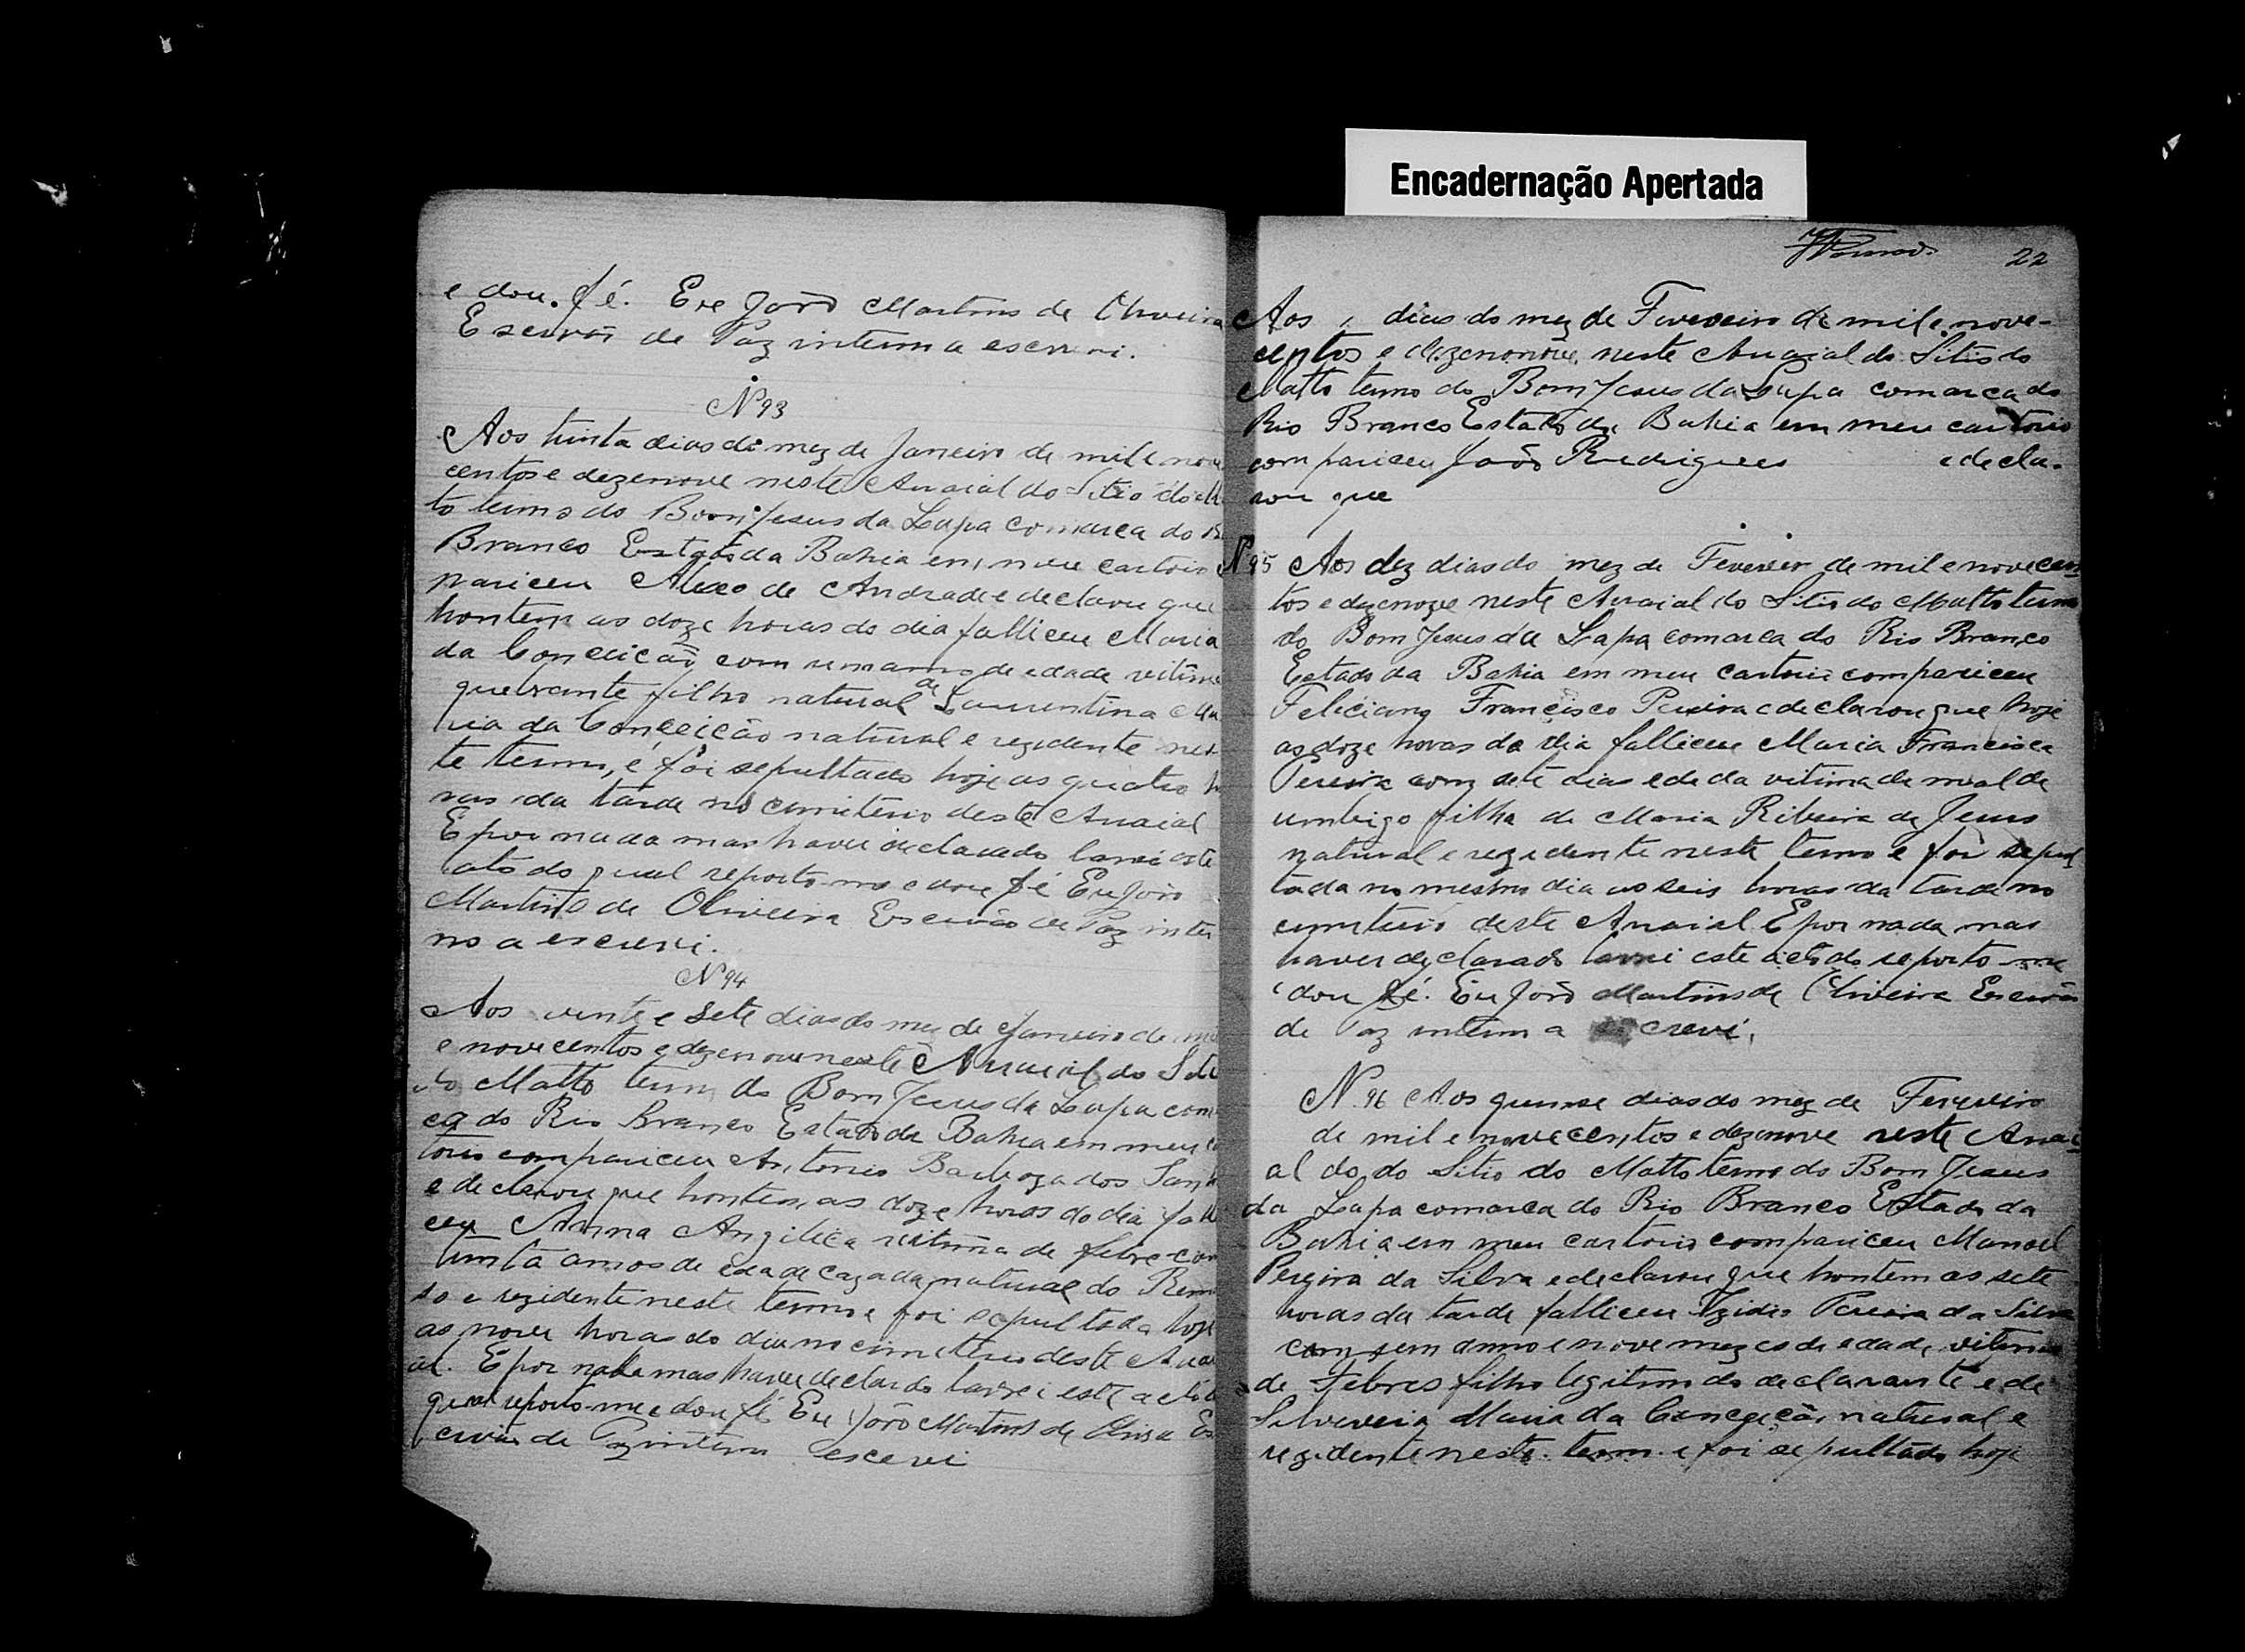 Encadernação Apertada
22
e dou. fé. Eu João Martins de Oliveira
Escrivão de Paz interino a escrevi.
Nº 93
Aos trinta dias do mez de Janeiro de mil e nove
centos e dezenove neste Arraial do Sitio do Mat
to termo do Bom Jesus da Lapa comarca do R
Branco Estado da Bahia em meu cartorio
pariceu de Andrade e declarou que
hontem as doze horas do dia falliceu Maria
da Conceicão com um anno de edade vitima
quebrante filho natural de Laurentina Ma
ria da Conceicão natural e rezidente nes
te termo, e foi sepultado hoje as quatro h
ras da tarde no cimiterio deste Arraial
E por nada mas haver declarado lavrei este
ato do qual reporto-me e dou fé Eu João
Martins de Oliveira Escrivão de Paz inter
no a escrevi.
Nº 94
Aos vinte e sete dias do mez de Janeiro de mil
e novecentos e dezenove neste Arraial do Siti
do Matto termo do Bom Jesus da Lapa com
ca do Rio Branco Estado da Bahia em meu c
torio compariceu Antonio Barboza dos Sant
e declarou que hontem, as doze horas do dia falle
ceu Anna Angilica vitima de febre com
trinta annos de edade cazada natural do Rem
so e rezidente neste termo e foi sepultada hoje
as nove horas do dia no cimiterio deste Arra
al. E por nada mas haver declarado lavrei este acto d
qual reporto-me e dou fé Eu João Martins de Oliveira Es
crivão de Paz interino escrevi
Aos dias do mez de Fevereiro de mil e nove-
centos e dezenonove neste Arraial do Sitio do
Matto termo do Bom Jesus da Lapa comarca do
Rio Branco Estado da Bahia em meu cartorio
compariceu João Rudrigues e decla-
rou que
Nº 95 Aos dez dias do mez de Fevereiro de mil e novecen
tos e dezenove neste Arraial do Sitio do Matto termo
do Bom Jesus da Lapa comarca do Rio Branco
Estado da Bahia em meu cartorio compariceu
Feliciano Francisco Pereira e declarou que hoje
as doze horas do dia falliceu Maria Francisca
Pereira com sete dias edada vitima de mal de
umbigo filha de Maria Ribeira de Jesus
natural e rezidente neste termo e foi sepul
tada no mesmo dia as seis horas da tarde no
cimiterio deste Arraial E por nada mas
haver declarado lavrei este acto do reporto-me
e dou fé. Eu João Martins de Oliveira Escrivão
de Paz interino a escrevi.
N. 96 Aos quinse dias do mez de Fevereiro
de mil e novecentos e dezenove neste Arrai
al do do Sitio do Matto termo do Bom Jesus
da Lapa comarca do Rio Branco Estado da
Bahia em meu cartorio compariceu Manoel
Pereira da Silva e declarou que hontem as sete
horas da tarde falliceu Izidio Pereira da Silva
com um anno e nove mezes de edade, vitima
de Febres filho legitimo do declarante e de
Silvereia Maria da Conceicão, natural e
rezidente neste termo e foi sepultado hoje